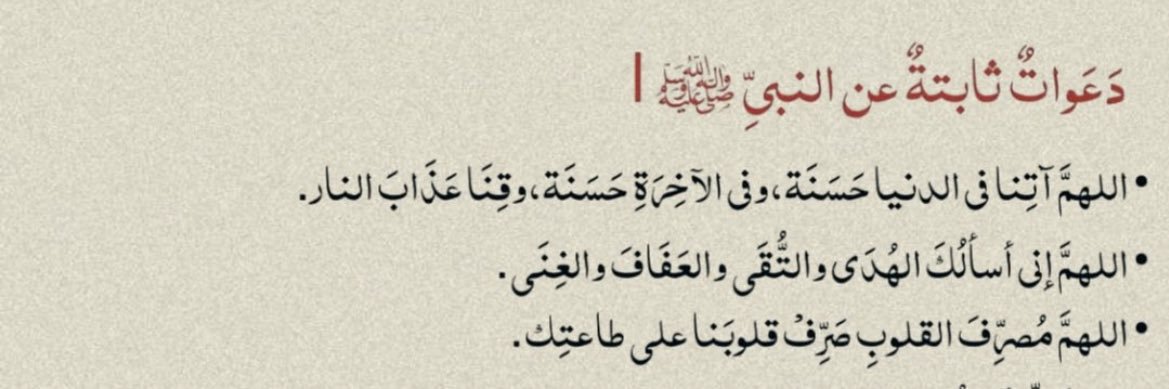 دَعَواتٌ ثابتةٌ عن النبيِّ ﷺ |
• اللهمَّ آتِنا في الدنيا حَسَنَة، وفي الآخِرَةِ حَسَنَة، وقِنَا عَذَابَ النار.
• اللهمَّ إني أسألُكَ الهُدَى والتُّقَى والعَفَافَ والغِنَى.
• اللهمَّ مُصرِّفَ القلوبِ صَرِّفْ قلوبَنا على طاعتِك.